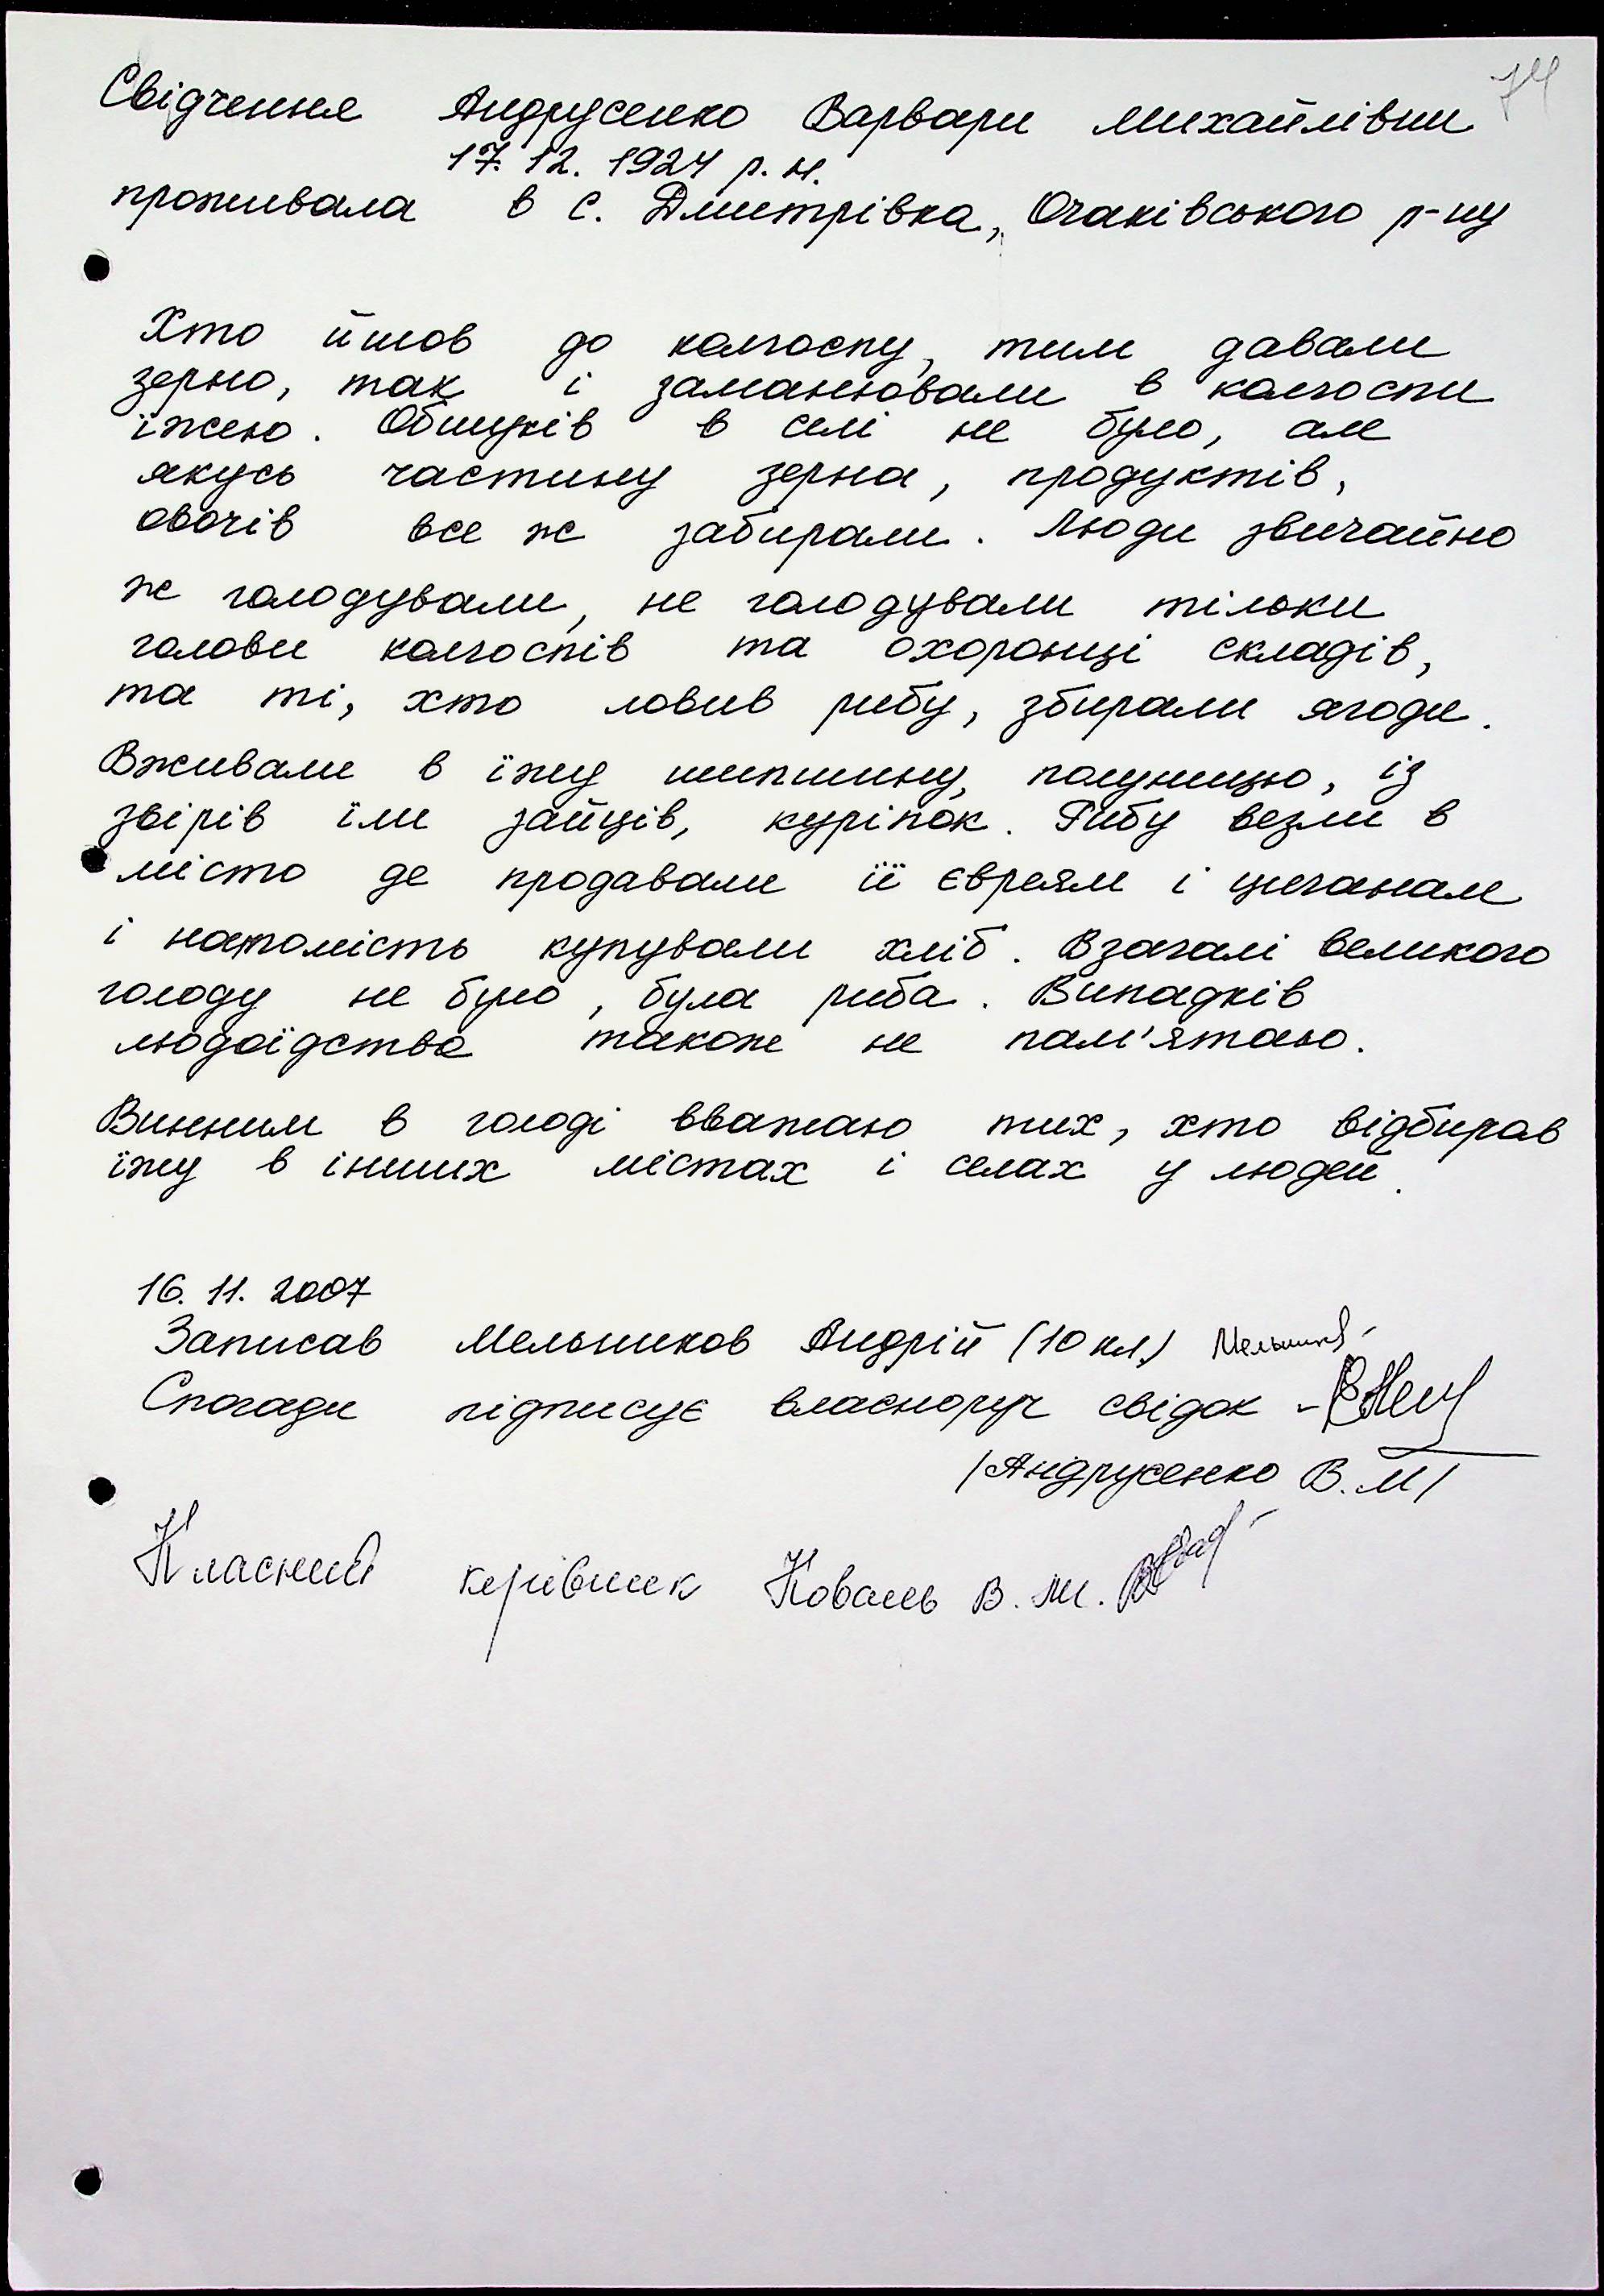 74
Свідчення Андрусенко Варвари Михайлівни
17.12.1924 р.н.
проживала в с. Дмитрівка, Очаківського р-ну
Хто йшов до колгоспу, тим давали
зерно, так і заманювали в колгоспи
їжею. Обшуків в селі не було, але
якусь частину зерна, продуктів,
овочів все ж забирали. Люди звичайно
ж голодували, не голодували тільки
голови колгоспів та охоронці складів,
та ті, хто ловив рибу, збирали ягоди.
Вживали в їжу шипшину, полуницю, із
звірів їли зайців, куріпок. Рибу везли в
місто де продавали її євреям і циганам
і натомість купували хліб. Взагалі великого
голоду не було, була риба. Випадків
людоїдства також не пам'ятаю.
Винним в голоді вважаю тих, хто відбирав
їжу в інших містах і селах у людей.
16.11.2007
Записав Мельников Андрій (10 кл.)
Спогади підписує власноруч свідок -
/Андрусенко В.М/
Класний керівник Коваль В.М.